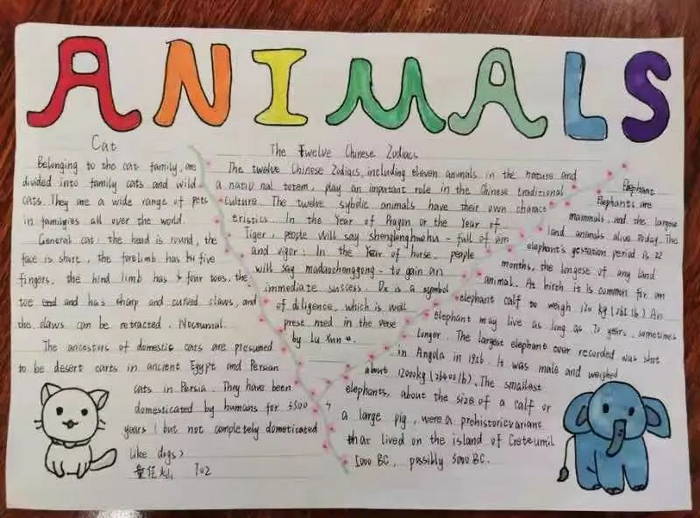 ANIMALS
Cat
Belonging to the cat family, are
divided into family cats and wild
cats. They are a wide range of pets
in families all over the world.
General cat: the head is round, the
face is short, the forelimb has five
fingers, the hind limb has four toes, the
toe end and has sharp and curved claws, and
the claws can be retracted. Nocturnal.
The ancestors of domestic cats are presumed
to be desert carts in ancient Egypt and Persian
cats in Persia. They have been
domesticated by humans for 3500
years (but not completely domesticated
like dogs)
702
The Twelve Chinese Zodiacs
The twelve Chinese Zodiacs, including eleven animals in the nature and
a natio nal totem, play an inportant role in the Chinese traditional
culture. The twelve sybolic animals have their own charac
teristics. In the Year of Dragon or the Year of
Tiger, people will say shenglonghuohu - full of vim
and vigor; In the Year of horse, people
will say madaochenggong - to gain an
immediate success. Ox is a symbol
of diligence, which is well
prese nted in the verse
by Lu Xun
Elephant
Elephants are
mammals, and the largest
land animals alive today. The
elephant's gestation period is 22
months, the longest of any land
animal. At birth it is common for an
elephant calf to weigh 120 kg (265 lb). An
elephant may live as long as 70 years, sometimes
longer. The largest elephant ever recorded was shot
in Angola in 1956. It was male and weighed
about 12000kg (26400 lb). The smallest
elephants, about the size of a calf or
a large pig, were a prehistoric variant
that lived on the island of Crete until
5000 BC, possibly 3000 BC.